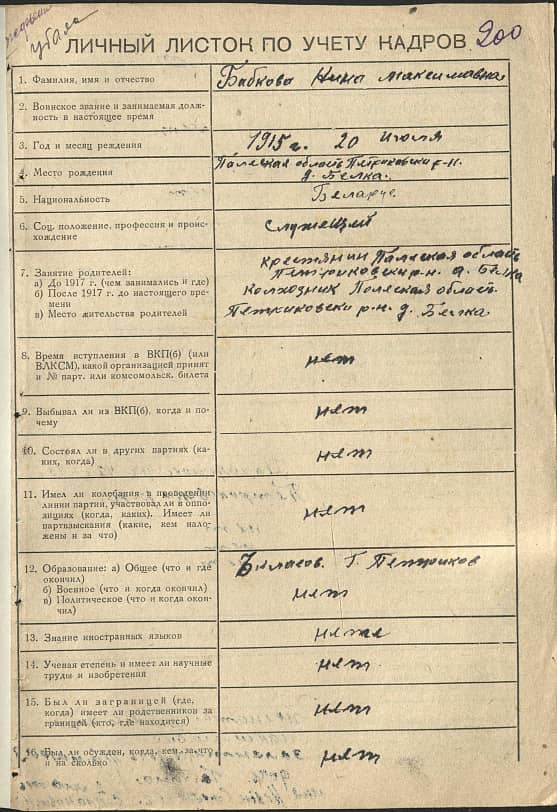 убала
ЛИЧНЫЙ ЛИСТОК ПО УЧЕТУ КАДРОВ 200
1. Фамилия, имя и отчество
Бабкова Нина Максимавна
2. Воинское звание и занимаемая долж-
ность в настоящее время
3. Год и месяц рождения
1915 г. 20 Июля
4. Место рождения
Палеская область Петриковски р-н.
д. Белка.
5. Национальность
Беларус
6. Соц. положение, профессия и проис-
хождение
Служещий
7. Занятие родителей:
а) До 1917 г. (чем занимались и где)
б) После 1917 г. до настоящего вре-
мени
в) Место жительства родителей
крестянин Палеская область
Петриковски р-н. д. Белка
колхозник Полеская област
Петриковски р-н. д. Белка.
8. Время вступления в ВКП(б) (или
ВЛКСМ), какой организацией принят
и № парт. или комсомольск. билета
нет
9. Выбывал ли из ВКП(б), когда и по-
чему
нет
10. Состоял ли в других партиях (ка-
ких, когда)
нет
11. Имел ли колебания в проведении
линии партии, участвовал ли в оппо-
зициях (когда, каких). Имеет ли
партвзыскания (какие, кем нало-
жены и за что)
нет
12. Образование: а) Общее (что и где
окончил)
б) Военное (что и когда окончил)
в) Политическое (что и когда окон-
чил)
г. Петриков
нет
13. Знание иностранных языков
14. Ученая степень и имеет ли научные
труды и изобретения
нет.
15. Был ли заграницей (где,
когда) имеет ли родственников за
границей (кто, где находится)
нет
16. Был ли осужден, когда, кем за что
и на сколько
нят